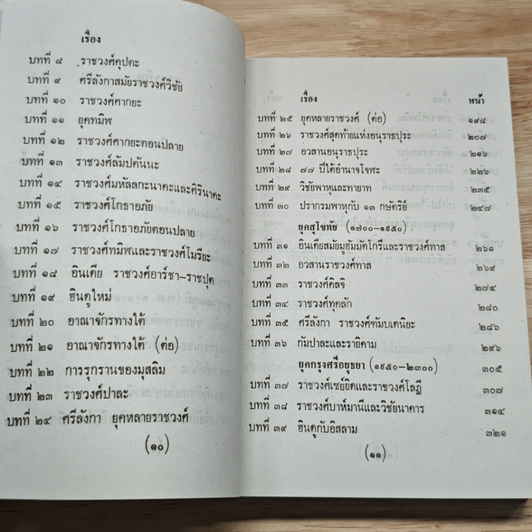 เรื่อง
บทที่ ๘ ราชวงศ์คุปตะ
บทที่ ๙ ศรีลังกาสมัยราชวงศ์วิชัย
บทที่ ๑๐ ราชวงศ์ศากยะ
บทที่ ๑๑ ยุคทมิฬ
บทที่ ๑๒ ราชวงศ์ศากยะตอนปลาย
บทที่ ๑๓ ราชวงศ์ลัมปคันนะ
บทที่ ๑๔ ราชวงศ์มหัลลกะนาคะและศิรินาคะ
บทที่ ๑๕ ราชวงศ์โกธาอภัย
บทที่ ๑๖ ราชวงศ์โกธาอภัยตอนปลาย
บทที่ ๑๗ ราชวงศ์ทมิฬและราชวงศ์โมริยะ
บทที่ ๑๘ อินเดีย ราชวงศ์อาร์ชา-ราชปุต
บทที่ ๑๙ ฮินดูใหม่
บทที่ ๒๐ อาณาจักรทางใต้
บทที่ ๒๑ อาณาจักรทางใต้ (ต่อ)
บทที่ ๒๒ การรุกรานของมุสลิม
บทที่ ๒๓ ราชวงศ์ปาละ
บทที่ ๒๔ ศรีลังกา ยุคหลายราชวงศ์
(๑๐)
เรื่อง หน้า
บทที่ ๒๕ ยุคหลายราชวงศ์ (ต่อ) ๑๙๘
บทที่ ๒๖ ราชวงศ์สุดท้ายแห่งอนุราชปุระ ๒๐๗
บทที่ ๒๗ อวสานอนุราชปุระ ๒๑๖
บทที่ ๒๘ ๗๗ ปีใต้อำนาจโจฬะ ๒๒๖
บทที่ ๒๙ วิชัยพาหุและทายาท ๒๓๕
บทที่ ๓๐ ปรากรมพาหุกับ ๑๓ กษัตริย์ ๒๔๗
ยุคสุโขทัย (๑๗๐๐-๑๙๕๐)
บทที่ ๓๑ อินเดียสมัยมูฮัมมัดโกรีและราชวงศ์ทาส ๒๖๑
บทที่ ๓๒ อวสานราชวงศ์ทาส ๒๖๙
บทที่ ๓๓ ราชวงศ์คิลจิ ๒๗๔
บทที่ ๓๔ ราชวงศ์ทุคลัก ๒๘๐
บทที่ ๓๕ ศรีลังกา ราชวงศ์ทัมบเดนิยะ ๒๘๖
บทที่ ๓๖ กัมปาละและรายิคาม ๒๙๖
ยุคกรุงศรีอยุธยา (๑๙๕๐-๒๓๐๐) ๓๐๕
บทที่ ๓๗ ราชวงศ์เซย์ยิดและราชวงศ์โลฏี ๓๐๗
บทที่ ๓๘ ราชวงศ์บาห์มานีและวิชัยนาคาร ๓๑๔
บทที่ ๓๙ ฮินดูกับอิสลาม ๓๒๑
(๑๑)